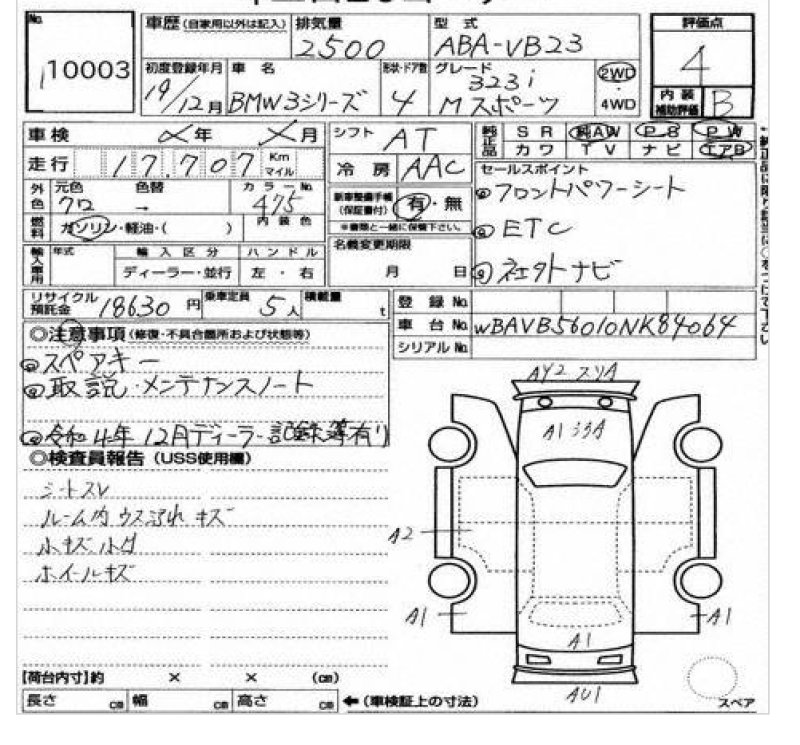 No.
10003
車歴 (自家用以外は記入)
排気量
2500
型 式
ABA-VB23
評価点
4
初度登録年月
19/12月
車 名
BMW3シリーズ
形状・ドア数
4
グレード
323i
Mスポーツ
2WD
4WD
内 装
補助評価
B
車検
年
月
シフト
AT
純正品
SR
純AW
PS
PW
カワ
TV
ナビ
エアB
走行
17.707
Km
マイル
冷 房
AAC
セールスポイント
フロントパワーシート
ETC
社外ナビ
外色
元色
クロ
色替
→
カラーNo.
475
新車整備手帳
(保証書付)
有・無
※書類と一緒に保管下さい。
燃料
ガソリン・軽油・( )
内装色
名義変更期限
月 日
輸入車用
年式
輸入区分
ディーラー・並行
ハンドル
左 ・ 右
リサイクル
預託金
18630 円
乗車定員
5 人
積載量
t
登 録 No.
車 台 No. WBAVB56010NK84064
シリアル No.
◎注意事項 (修復・不具合箇所および状態等)
スペアキー
取説・メンテナンスノート
令和4年12月ディーラー記録簿有り
◎検査員報告 (USS使用欄)
シートスレ
ルーム内 ウス汚れ キズ
小キズ 小凹
ホイールキズ
AY2
A1
A2
A1
A1
A1
AU1
スペア
【荷台内寸】約 × × (cm)
長さ cm 幅 cm 高さ cm ←(車検証上の寸法)